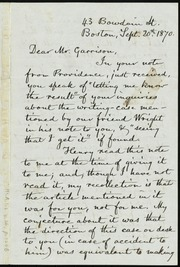 43 Bowdoin St.
Boston, Sept. 20th 1870.
Dear Mr. Garrison,
In your note
from Providence, just received,
you speak of "letting me know
the result of your inquiries
about the writing-case men-
tioned by our friend Wright
in his note to you, & "seeing
that I get it" if found.
Henry read this note
to me at the time of giving it
to me; and, though I have not
read it, my recollection is that
the article mentioned in it
was for you, not for me. My
conjecture about it was that
the direction of this case or desk
to you (in case of accident to
him) was equivalent to making